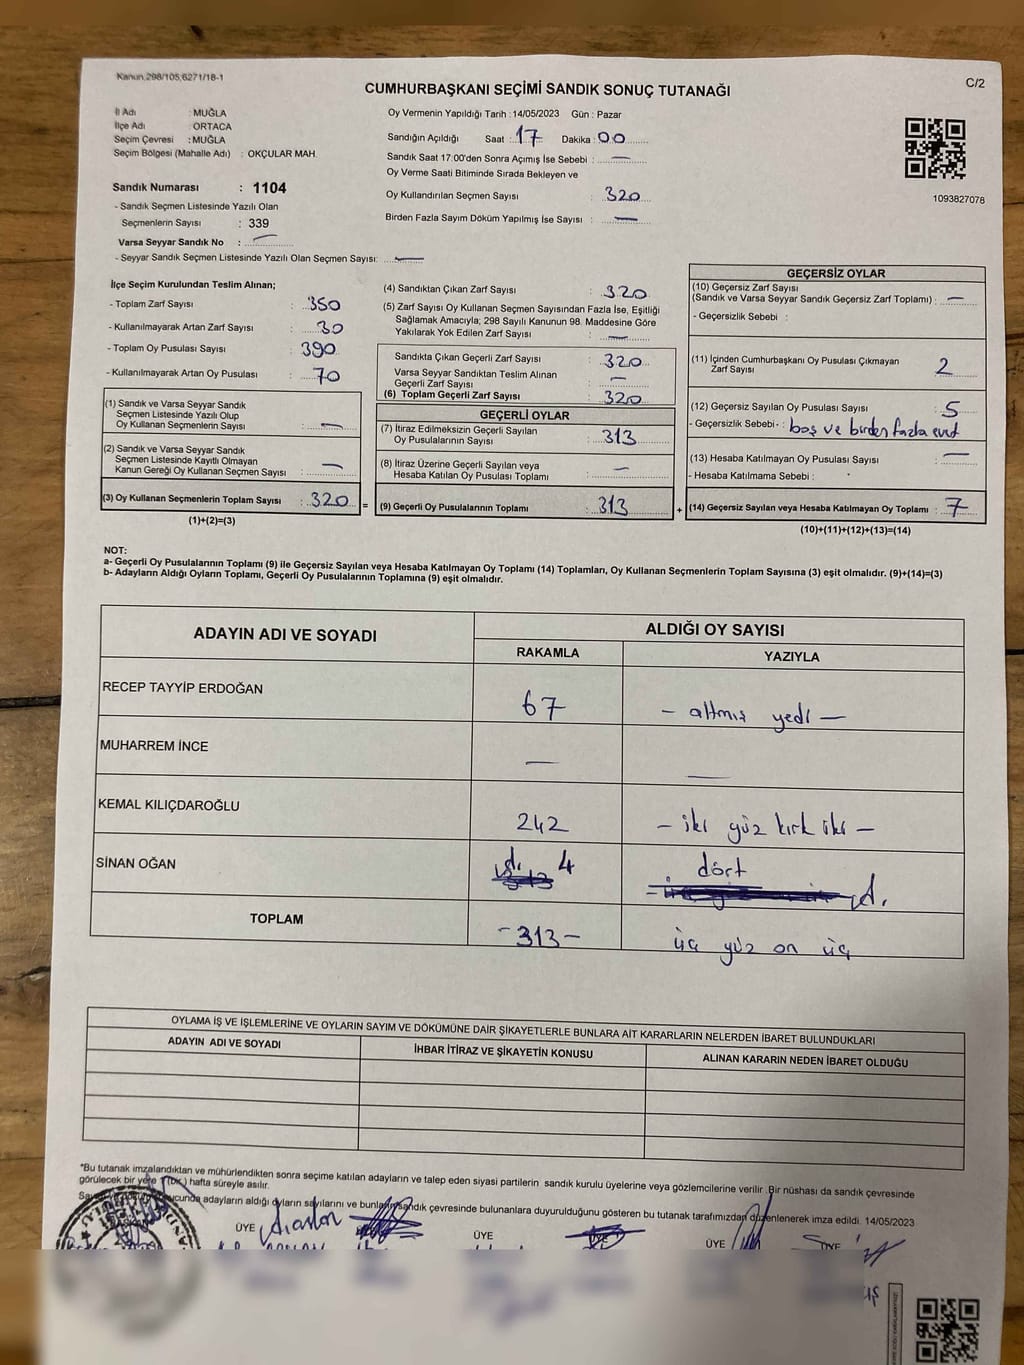 Kanun.298/105,6271/18-1
CUMHURBAŞKANI SEÇİMİ SANDIK SONUÇ TUTANAĞI
C/2
İl Adı : MUĞLA
İlçe Adı : ORTACA
Seçim Çevresi : MUĞLA
Seçim Bölgesi (Mahalle Adı) : OKÇULAR MAH.
Sandık Numarası : 1104
- Sandık Seçmen Listesinde Yazılı Olan
Seçmenlerin Sayısı : 339
Varsa Seyyar Sandık No : —
- Seyyar Sandık Seçmen Listesinde Yazılı Olan Seçmen Sayısı: —
Oy Vermenin Yapıldığı Tarih : 14/05/2023 Gün : Pazar
Sandığın Açıldığı Saat : 17 Dakika : 00
Sandık Saat 17:00'den Sonra Açımış İse Sebebi : —
Oy Verme Saati Bitiminde Sırada Bekleyen ve
Oy Kullandırılan Seçmen Sayısı : 320
Birden Fazla Sayım Döküm Yapılmış İse Sayısı : —
1093827078
İlçe Seçim Kurulundan Teslim Alınan;
- Toplam Zarf Sayısı : 350
- Kullanılmayarak Artan Zarf Sayısı : 30
- Toplam Oy Pusulası Sayısı : 390
- Kullanılmayarak Artan Oy Pusulası : 70
(1) Sandık ve Varsa Seyyar Sandık
Seçmen Listesinde Yazılı Olup
Oy Kullanan Seçmenlerin Sayısı : —
(2) Sandık ve Varsa Seyyar Sandık
Seçmen Listesinde Kayıtlı Olmayan
Kanun Gereği Oy Kullanan Seçmen Sayısı : —
(3) Oy Kullanan Seçmenlerin Toplam Sayısı : 320 =
(1)+(2)=(3)
(4) Sandıktan Çıkan Zarf Sayısı : 320
(5) Zarf Sayısı Oy Kullanan Seçmen Sayısından Fazla İse, Eşitliği
Sağlamak Amacıyla; 298 Sayılı Kanunun 98. Maddesine Göre
Yakılarak Yok Edilen Zarf Sayısı : —
Sandıkta Çıkan Geçerli Zarf Sayısı : 320
Varsa Seyyar Sandıktan Teslim Alınan
Geçerli Zarf Sayısı : —
(6) Toplam Geçerli Zarf Sayısı : 320
GEÇERLİ OYLAR
(7) İtiraz Edilmeksizin Geçerli Sayılan
Oy Pusulalarının Sayısı : 313
(8) İtiraz Üzerine Geçerli Sayılan veya
Hesaba Katılan Oy Pusulası Toplamı : —
(9) Geçerli Oy Pusulalarının Toplamı : 313 +
GEÇERSİZ OYLAR
(10) Geçersiz Zarf Sayısı
(Sandık ve Varsa Seyyar Sandık Geçersiz Zarf Toplamı) : —
- Geçersizlik Sebebi :
(11) İçinden Cumhurbaşkanı Oy Pusulası Çıkmayan
Zarf Sayısı 2
(12) Geçersiz Sayılan Oy Pusulası Sayısı : 5
- Geçersizlik Sebebi - : boş ve birden fazla evet
(13) Hesaba Katılmayan Oy Pusulası Sayısı : —
- Hesaba Katılmama Sebebi :
(14) Geçersiz Sayılan veya Hesaba Katılmayan Oy Toplamı : 7
(10)+(11)+(12)+(13)=(14)
NOT:
a- Geçerli Oy Pusulalarının Toplamı (9) ile Geçersiz Sayılan veya Hesaba Katılmayan Oy Toplamı (14) Toplamları, Oy Kullanan Seçmenlerin Toplam Sayısına (3) eşit olmalıdır. (9)+(14)=(3)
b- Adayların Aldığı Oyların Toplamı, Geçerli Oy Pusulalarının Toplamına (9) eşit olmalıdır.
ADAYIN ADI VE SOYADI
ALDIĞI OY SAYISI
RAKAMLA YAZIYLA
RECEP TAYYİP ERDOĞAN 67 — altmış yedi —
MUHARREM İNCE — —
KEMAL KILIÇDAROĞLU 242 — iki yüz kırk iki —
SİNAN OĞAN 4 dört
TOPLAM -313- üç yüz on üç
OYLAMA İŞ VE İŞLEMLERİNE VE OYLARIN SAYIM VE DÖKÜMÜNE DAİR ŞİKAYETLERLE BUNLARA AİT KARARLARIN NELERDEN İBARET BULUNDUKLARI
ADAYIN ADI VE SOYADI İHBAR İTİRAZ VE ŞİKAYETİN KONUSU ALINAN KARARIN NEDEN İBARET OLDUĞU
*Bu tutanak imzalandıktan ve mühürlendikten sonra seçime katılan adayların ve talep eden siyasi partilerin sandık kurulu üyelerine veya gözlemcilerine verilir. Bir nüshası da sandık çevresinde
görülecek bir yere 1 (bir) hafta süreyle asılır.
adayların aldığı oyların sayılarını ve bunların sandık çevresinde bulunanlara duyurulduğunu gösteren bu tutanak tarafımızdan düzenlenerek imza edildi. 14/05/2023
ÜYE ÜYE ÜYE ÜYE ÜYE